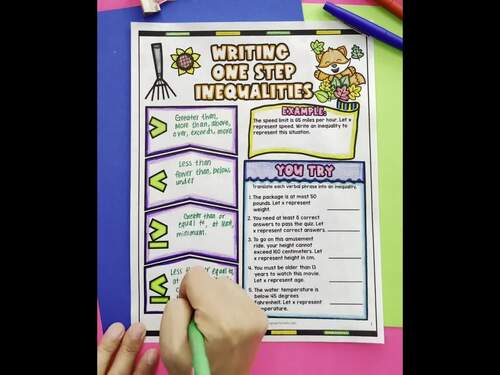 WRITING
ONE STEP
INEQUALITIES
>
Greater than,
More than, above,
over, exceeds, more
<
Less than
fewer than, below
under
≥
Greater than or
equal to, at least,
minimum.
≤
Less
equal to,
at
EXAMPLE:
The speed limit is 65 miles per hour. Let x
represent speed. Write an inequality to
represent this situation.
YOU TRY
Translate each verbal phrase into an inequality.
1. The package is at most 50
pounds. Let x represent
weight.
2. You need at least 8 correct
answers to pass the quiz. Let
x represent correct answers.
3. To go on this amusement
ride, your height cannot
exceed 160 centimeters. Let
x represent height in cm.
4. You must be older than 13
years to watch this movie.
Let x represent age.
5. The water temperature is
below 45 degrees
Fahrenheit. Let x represent
temperature.